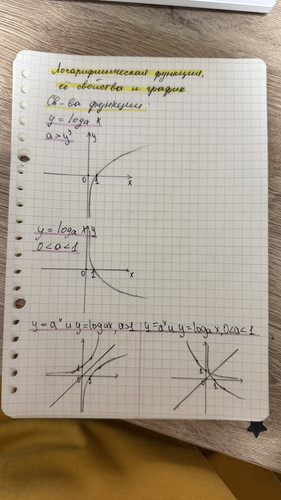 Логарифмическая функция,
её свойства и график.
Св-ва функции:
y = loga x
a > y
0 1 x
y = loga x y
0 < a < 1
0 1 x
y = aˣ и y = loga x, a > 1 y = aˣ и y = loga x, 0 < a < 1
1 1
0 1 0 1